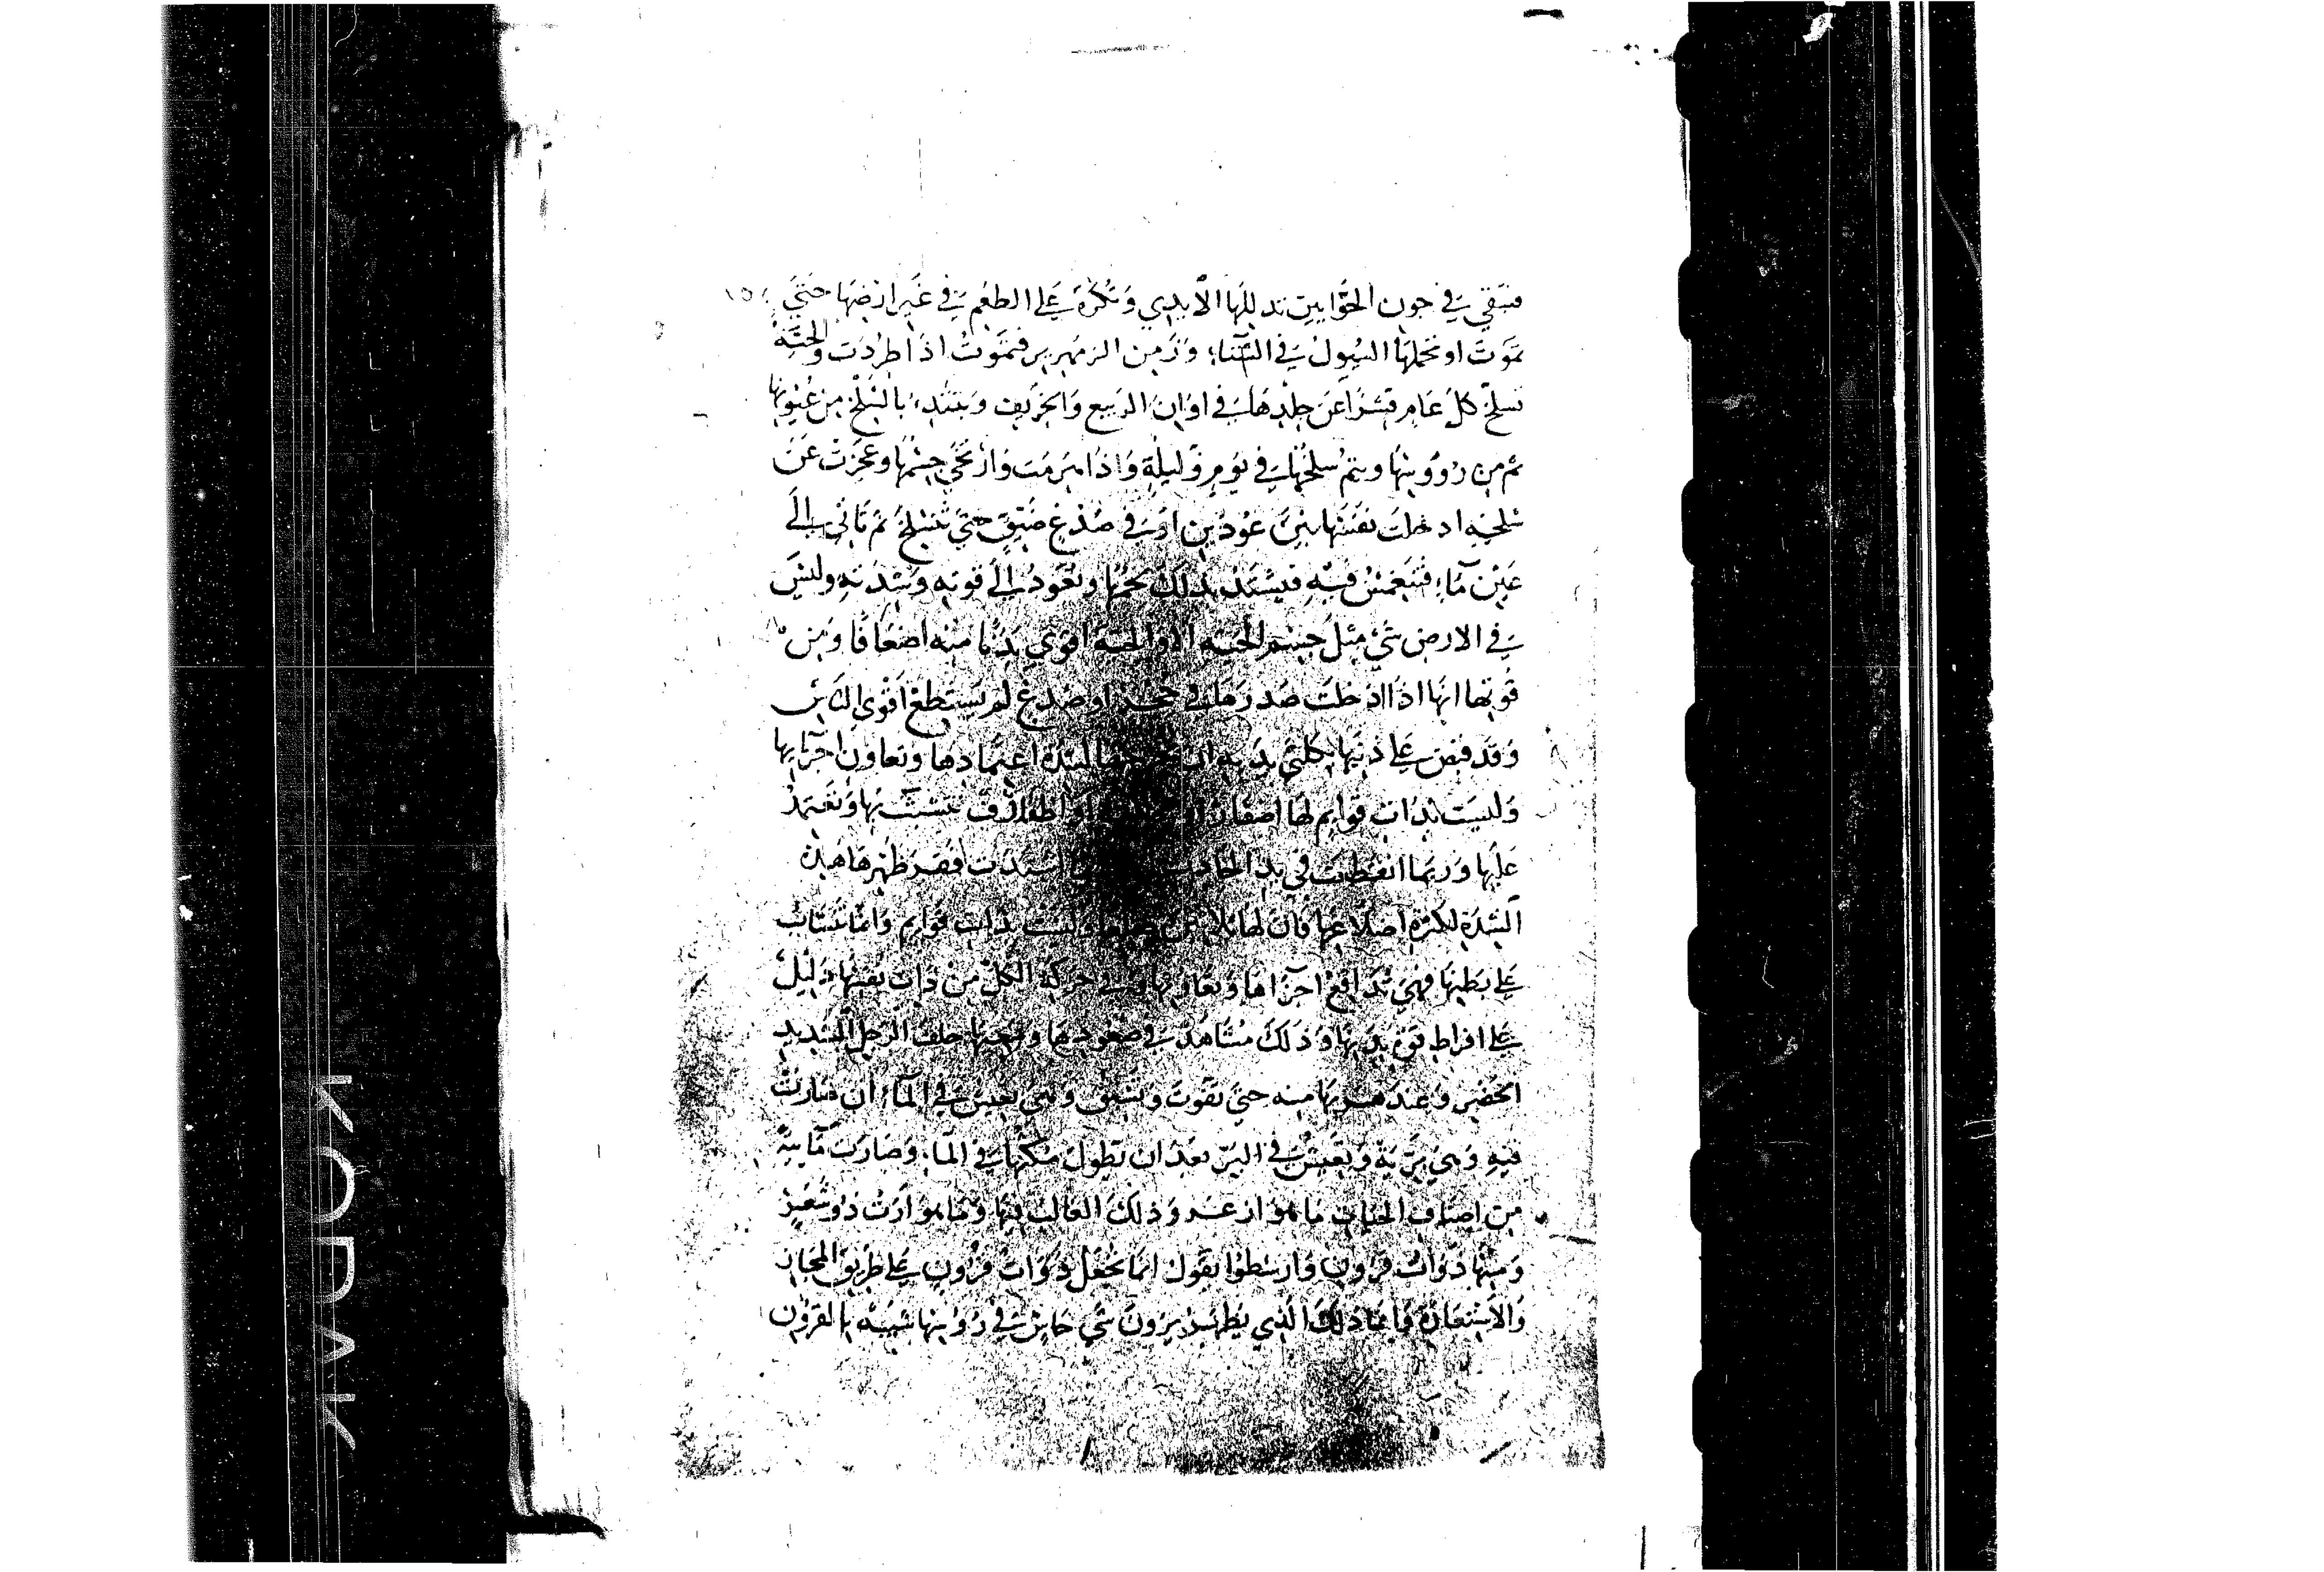 فتبقي في جون الحوايين تدبلها الايدي وتكره علي الطعم في غير ارضها حتي
تموت او تحملها السيول في الشتاء وزمن الزمهرير فتموت اذا طردت والحية
تسلخ كل عام قشرا عن جلدها في اوان الربيع والخريف ويبتدء بالسلخ من عيونها
ثم من رووسها ويتم سلخها في يوم وليلة واذا هرمت وارتخي جسمها وعجزت عن
سلخه ادخلت نفسها بين عودين او في صدع ضيق حتي تنسلخ ثم تاتي الي
عين ماء فتنغمس فيه فيشتد بذلك لحمها وتعود الي قوته وشدته وليس
في الارض شي مثل جسم الحية الا والحية اقوي بدنا منه اضعافا ومن
قوتها انها اذا ادخلت صدرها في جحر او صدع لم يستطع اقوي الناس
وقد قبض علي ذنبها بكلتي يديه ان يخرجها لشدة اعتمادها وتعاون اجزايها
وليست بذات قوايم لها اظفار او اظلاف تتشبث بها وتعتمد
عليها وربما انقطعت في يد الجاذب فقد ظهر هاهنا
الشدة لكثرة اضلاعها فان لها ثلاثين وليست بذات قوايم وانما تنساب
علي بطنها فهي تدافع اجزاها وتعاونها وفي حركة الكل من ذات نفسها دليل
علي افراط قوة بدنها وذلك مشاهد في صعودها وسعيها خلف الرجل الشديد
الحضر وعند هربها منه حتي تفوت وتسبق وهي تعيش في الماء ان صارت
فيه وهي برية وتعيش في البر بعد ان تطول مكثها في الماء وصارت مايية
من اصناف الحيات ما هو ازعر وذلك الغالب فيها وما هو ازب ذو شعر
ومنها ذوات قرون وارسطوا يقول انما تجعل ذوات قرون علي طريق المجاز
والاستعارة وانما ذلك الذي يظهر شي خاش في رووسها شبيه بالقرون
KODAK